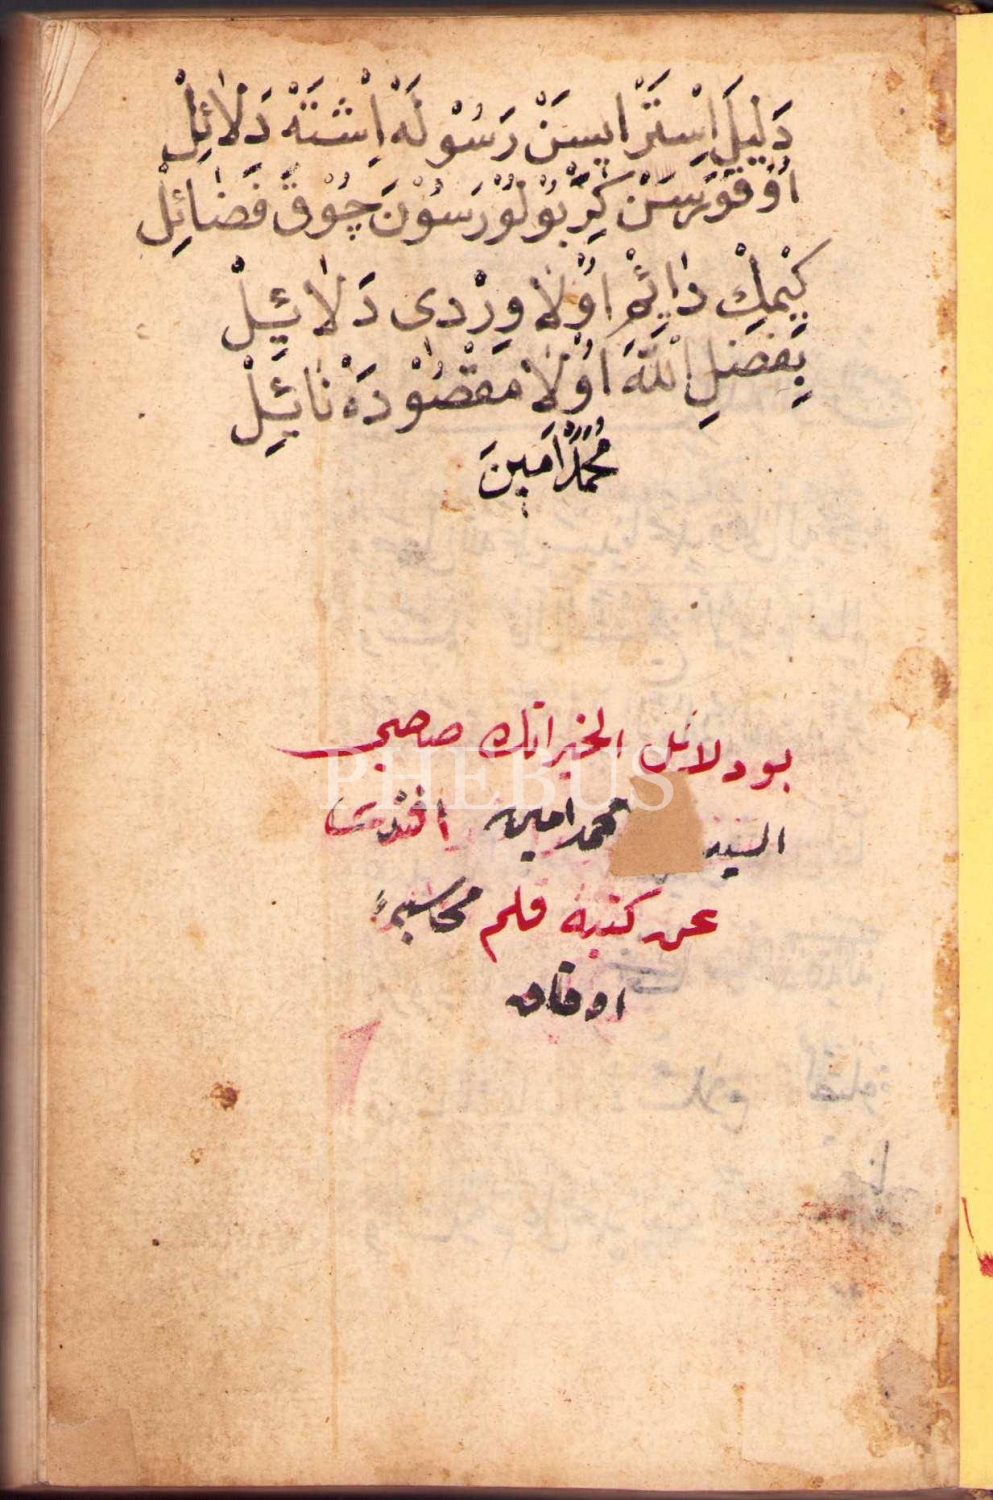 دَلِيلَ اِسْتَرْ ايسَنْ رَسُوْلَهْ اِشْتَهْ دَلَائِلْ
اُوْقُوْرسَنْ كِرْ بُوْلُوْرسُوْنَ چُوْقْ فَضَائِلْ
كِيْمِكْ دَائِمْ اوُلَا وِرْدى دَلَائِيلْ
بِفَضْلِ اللّٰهَ اوُلَا مَقْصُوْدَهْ نَائِيلْ
مُحَمَّدْ اَمِينَ
بو دلائل الخيراتك صاحبى
السيد محمد امين افندى
عن كتبهٔ قلم محاسبهٔ
اوقاف
PHEBUS